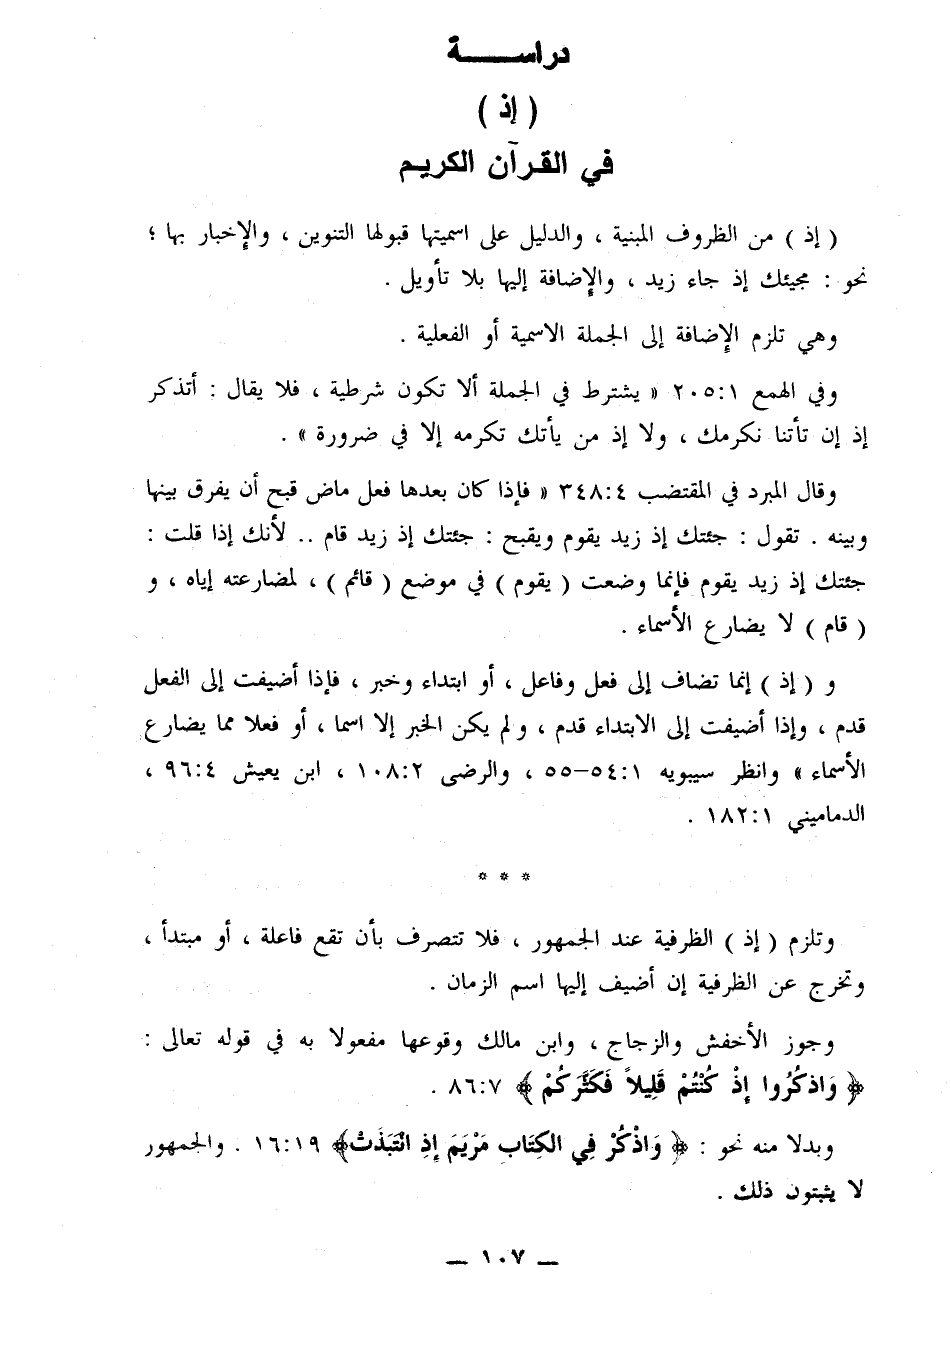 دراســـة
( إذ )
في القرآن الكريم
( إذ ) من الظروف المبنية ، والدليل على اسميتها قبولها التنوين ، والإخبار بها ؛
نحو : مجيئك إذ جاء زيد ، والإضافة إليها بلا تأويل .
وهي تلزم الإضافة إلى الجملة الاسمية أو الفعلية .
وفي الهمع ٢٠٥:١ « يشترط في الجملة ألا تكون شرطية ، فلا يقال : أتذكر
إذ إن تأتنا نكرمك ، ولا إذ من يأتك تكرمه إلا في ضرورة » .
وقال المبرد في المقتضب ٣٤٨:٤ « فإذا كان بعدها فعل ماض قبح أن يفرق بينها
وبينه . تقول : جئتك إذ زيد يقوم ويقبح : جئتك إذ زيد قام .. لأنك إذا قلت :
جئتك إذ زيد يقوم فإنما وضعت ( يقوم ) في موضع ( قائم ) ، لمضارعته إياه ، و
( قام ) لا يضارع الأسماء .
و ( إذ ) إنما تضاف إلى فعل وفاعل ، أو ابتداء وخبر ، فإذا أضيفت إلى الفعل
قدم ، وإذا أضيفت إلى الابتداء قدم ، ولم يكن الخبر إلا اسما ، أو فعلا مما يضارع
الأسماء » وانظر سيبويه ٥٤:١–٥٥ ، والرضى ١٠٨:٢ ، ابن يعيش ٩٦:٤ ،
الدماميني ١٨٢:١ .
* * *
وتلزم ( إذ ) الظرفية عند الجمهور ، فلا تتصرف بأن تقع فاعلة ، أو مبتدأ ،
وتخرج عن الظرفية إن أضيف إليها اسم الزمان .
وجوز الأخفش والزجاج ، وابن مالك وقوعها مفعولا به في قوله تعالى :
﴿ وَاذكُرُوا إِذْ كُنْتُمْ قَلِيلاً فَكَثَّرَكُمْ ﴾ ٨٦:٧ .
وبدلا منه نحو : ﴿ وَاذْكُرْ فِي الكِتَابِ مَرْيَمَ إِذِ انْتَبَذَتْ﴾ ١٦:١٩ . والجمهور
لا يثبتون ذلك .
— ١٠٧ —